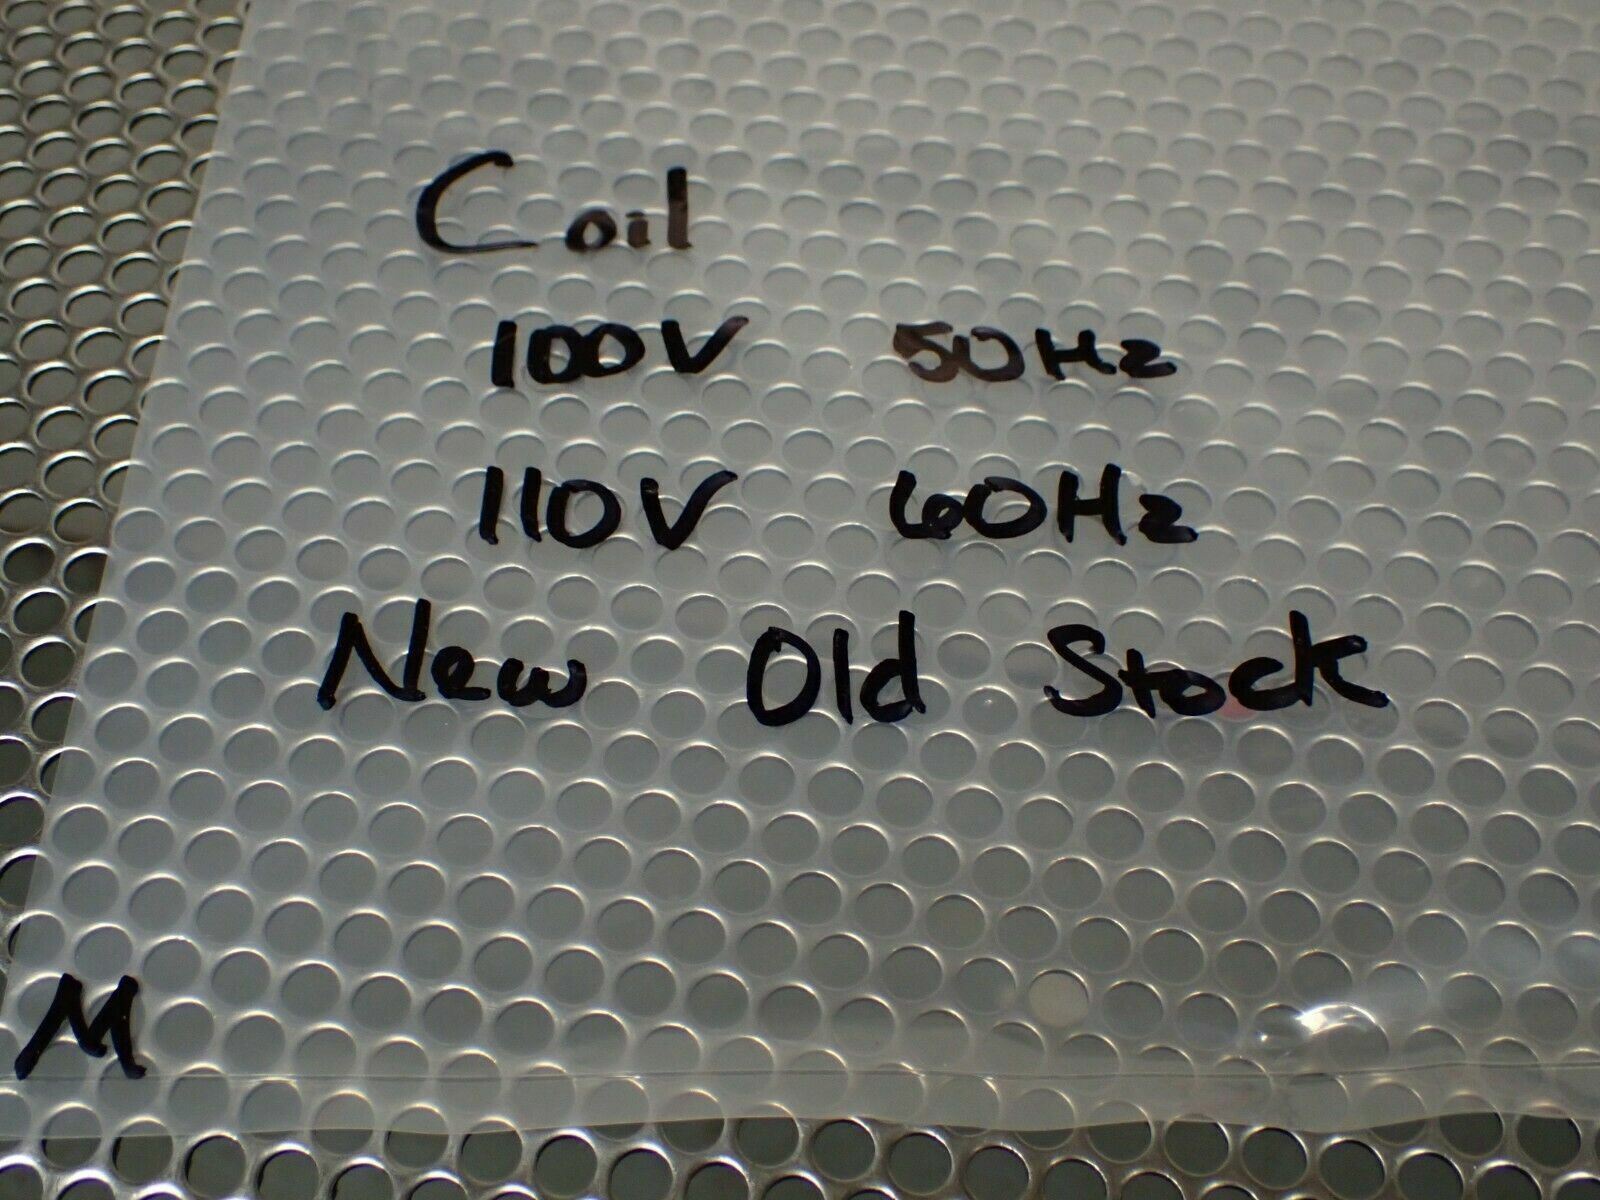 Coil
100V 50Hz
110V 60Hz
New Old Stock
M